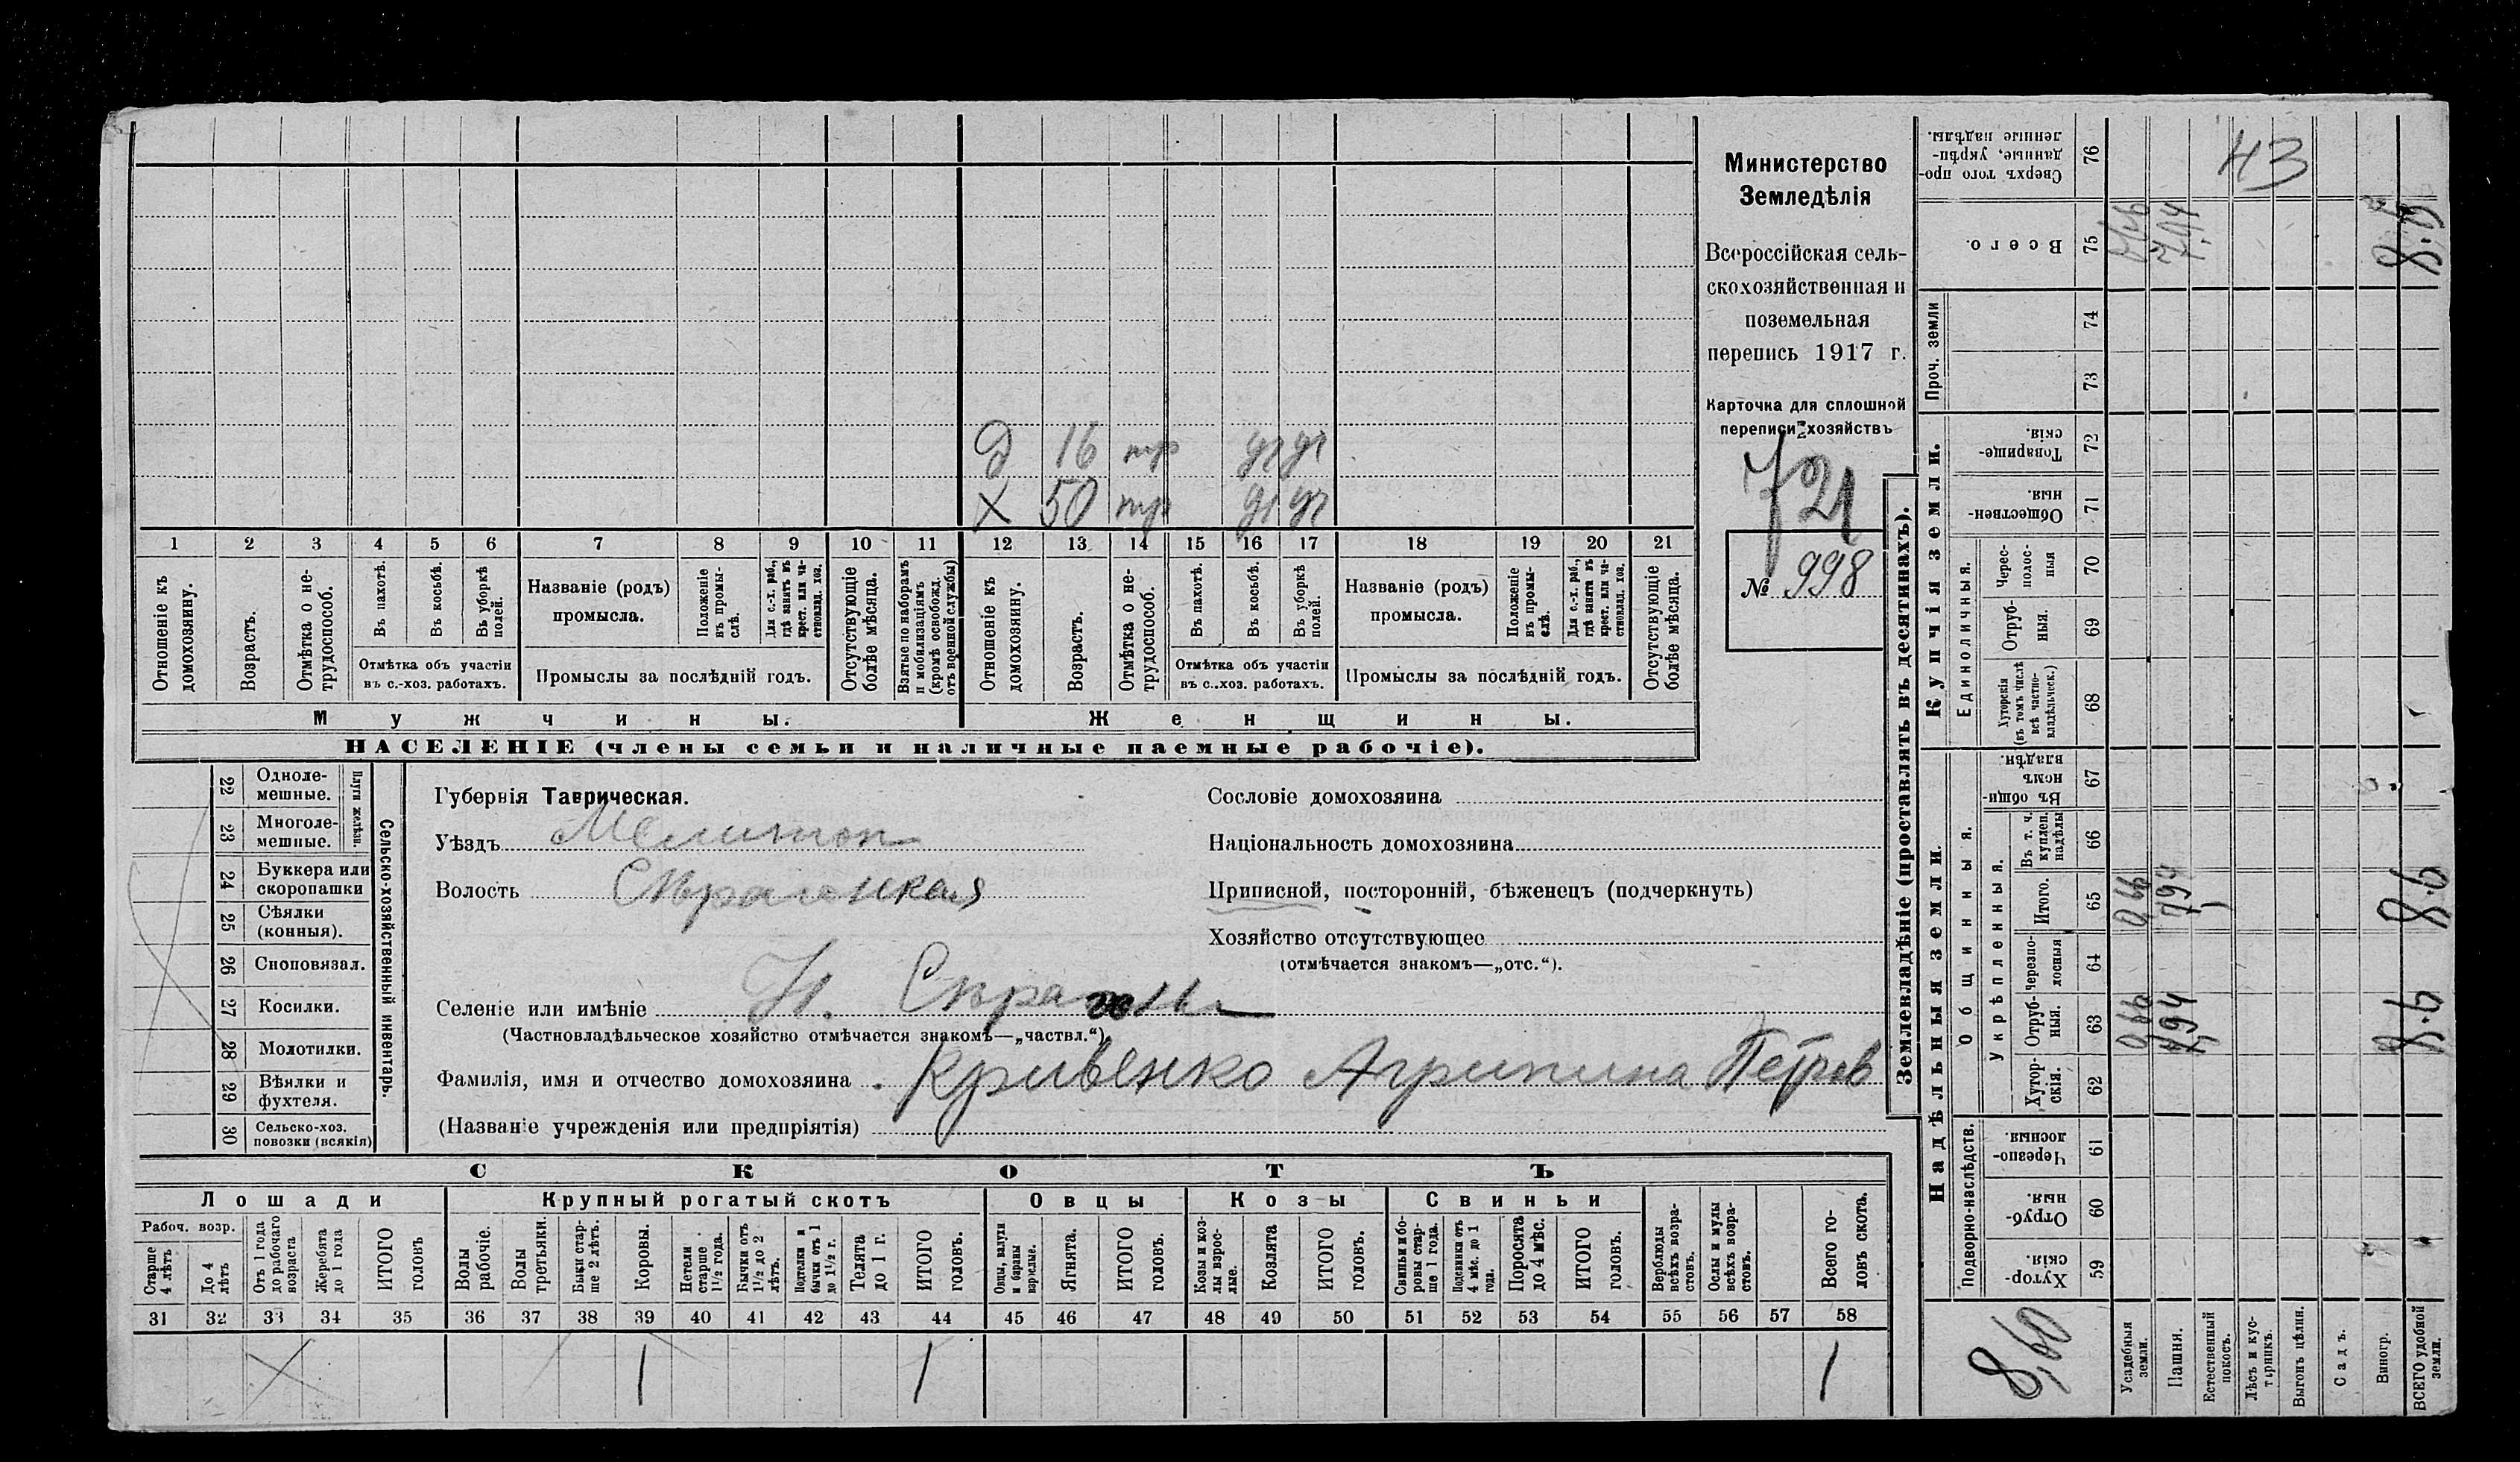 Министерство
Земледѣлія
Всероссійская сель-
скохозяйственная и
поземельная
перепись 1917 г.
Карточка для сплошной
переписи хозяйствъ
721
№ 998
Д 16 тр
Х 50 тр
1 2 3 4 5 6 7 8 9 10 11 12 13 14 15 16 17 18 19 20 21
Отношеніе къ домохозяину.
Возрастъ.
Отмѣтка о не-трудоспособ.
Въ пахотѣ.
Въ косьбѣ.
Въ уборкѣ полей.
Отмѣтка объ участіи
въ с.-хоз. работахъ.
Названіе (родъ)
промысла.
Положеніе въ промы-слѣ.
Для с.-х. раб., гдѣ занятъ въ крест. или ча-стновлад. хоз.
Промыслы за послѣдній годъ.
Отсутствующіе болѣе мѣсяца.
Взятые по наборамъ и мобилизаціямъ (кромѣ освобожд. отъ военной службы)
Отношеніе къ домохозяину.
Возрастъ.
Отмѣтка о не-трудоспособ.
Въ пахотѣ.
Въ косьбѣ.
Въ уборкѣ полей.
Отмѣтка объ участіи
въ с.-хоз. работахъ.
Названіе (родъ)
промысла.
Положеніе въ промы-слѣ.
Для с.-х. раб., гдѣ занята въ крест. или ча-стновлад. хоз.
Промыслы за послѣдній годъ.
Отсутствующіе болѣе мѣсяца.
Мужчины.
Женщины.
НАСЕЛЕНІЕ (члены семьи и наличные наемные рабочіе).
Сельско-хозяйственный инвентарь.
Плуги желѣзн.
22 Одноле-
мешные.
23 Многоле-
мешные.
24 Буккера или
скоропашки
25 Сѣялки
(конныя).
26 Сноповязал.
27 Косилки.
28 Молотилки.
29 Вѣялки и
фухтеля.
30 Сельско-хоз.
повозки (всякія)
Губернія Таврическая.
Уѣздъ Мелитоп
Волость
Селеніе или имѣніе Н.
(Частновладѣльческое хозяйство отмѣчается знакомъ—„частвл.“)
Фамилія, имя и отчество домохозяина Кривенко Агрипина Петров
(Названіе учрежденія или предпріятія)
Сословіе домохозяина
Національность домохозяина
Приписной, посторонній, бѣженецъ (подчеркнуть)
Хозяйство отсутствующее
(отмѣчается знакомъ—„отс.“).
СКОТЪ
Лошади
Крупный рогатый скотъ
Овцы
Козы
Свиньи
Рабоч. возр.
Старше 4 лѣтъ
До 4 лѣтъ
Отъ 1 года до рабочаго возраста
Жеребята до 1 года
ИТОГО головъ
Волы рабочіе.
Волы третьяки.
Быки стар-ше 2 лѣтъ.
Коровы.
Нетели старше 1½ года.
Бычки отъ 1½ до 2 лѣтъ.
Подтелки и бычки отъ 1 до 1½ г.
Телята до 1 г.
ИТОГО головъ.
Овцы, валухи и бараны взрослые.
Ягнята.
ИТОГО головъ.
Козы и коз-лы взрос-лые.
Козлята
ИТОГО головъ.
Свиньи и бо-ровы стар-ше 1 года.
Подсвинки отъ 4 мѣс. до 1 года.
Поросята до 4 мѣс.
ИТОГО головъ.
Верблюды всѣхъ возра-стовъ.
Ослы и мулы всѣхъ возра-стовъ.
Всего го-ловъ скота.
31 32 33 34 35 36 37 38 39 40 41 42 43 44 45 46 47 48 49 50 51 52 53 54 55 56 57 58
1 1 1
Землевладѣніе (проставлять въ десятинахъ).
Надѣльныя земли.
Купчія земли.
Проч. земли
Подворно-наслѣдств.
Общинныя.
Укрѣпленныя.
Единоличныя.
Хутор-скія. 59
Отруб-ныя. 60
Черезпо-лосныя. 61
Хутор-скія. 62
Отруб-ныя. 63
Черезпо-лосныя 64
Итого. 65
Въ т. ч. куплен. надѣлы 66
Въ общи-номъ владѣн. 67
Хуторскія (въ томъ числѣ всѣ частно-владѣльческ.) 68
Отруб-ныя. 69
Черес-полос-ныя 70
Обществен-ныя. 71
Товарище-скія. 72
73
74
Всего. 75
Сверхъ того про-данные, укрѣп-ленные надѣлы. 76
43
8,60
Усадебныя земли.
Пашня.
Естественный покосъ.
Лѣсъ и кус-тарникъ.
Выгонъ цѣлин.
Садъ.
Виногр.
ВСЕГО удобной земли.
0,66 7,94 8.6
0,66 7,94 8.6
0,66 7,94 8.6